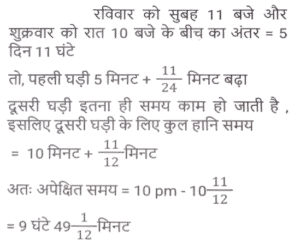 रविवार को सुबह 11 बजे और
शुक्रवार को रात 10 बजे के बीच का अंतर = 5
दिन 11 घंटे
तो, पहली घड़ी 5 मिनट + 11/24 मिनट बढ़ा
दूसरी घड़ी इतना ही समय काम हो जाती है ,
इसलिए दूसरी घड़ी के लिए कुल हानि समय
= 10 मिनट + 11/12 मिनट
अतः अपेक्षित समय = 10 pm - 10 11/12
= 9 घंटे 49 1/12 मिनट